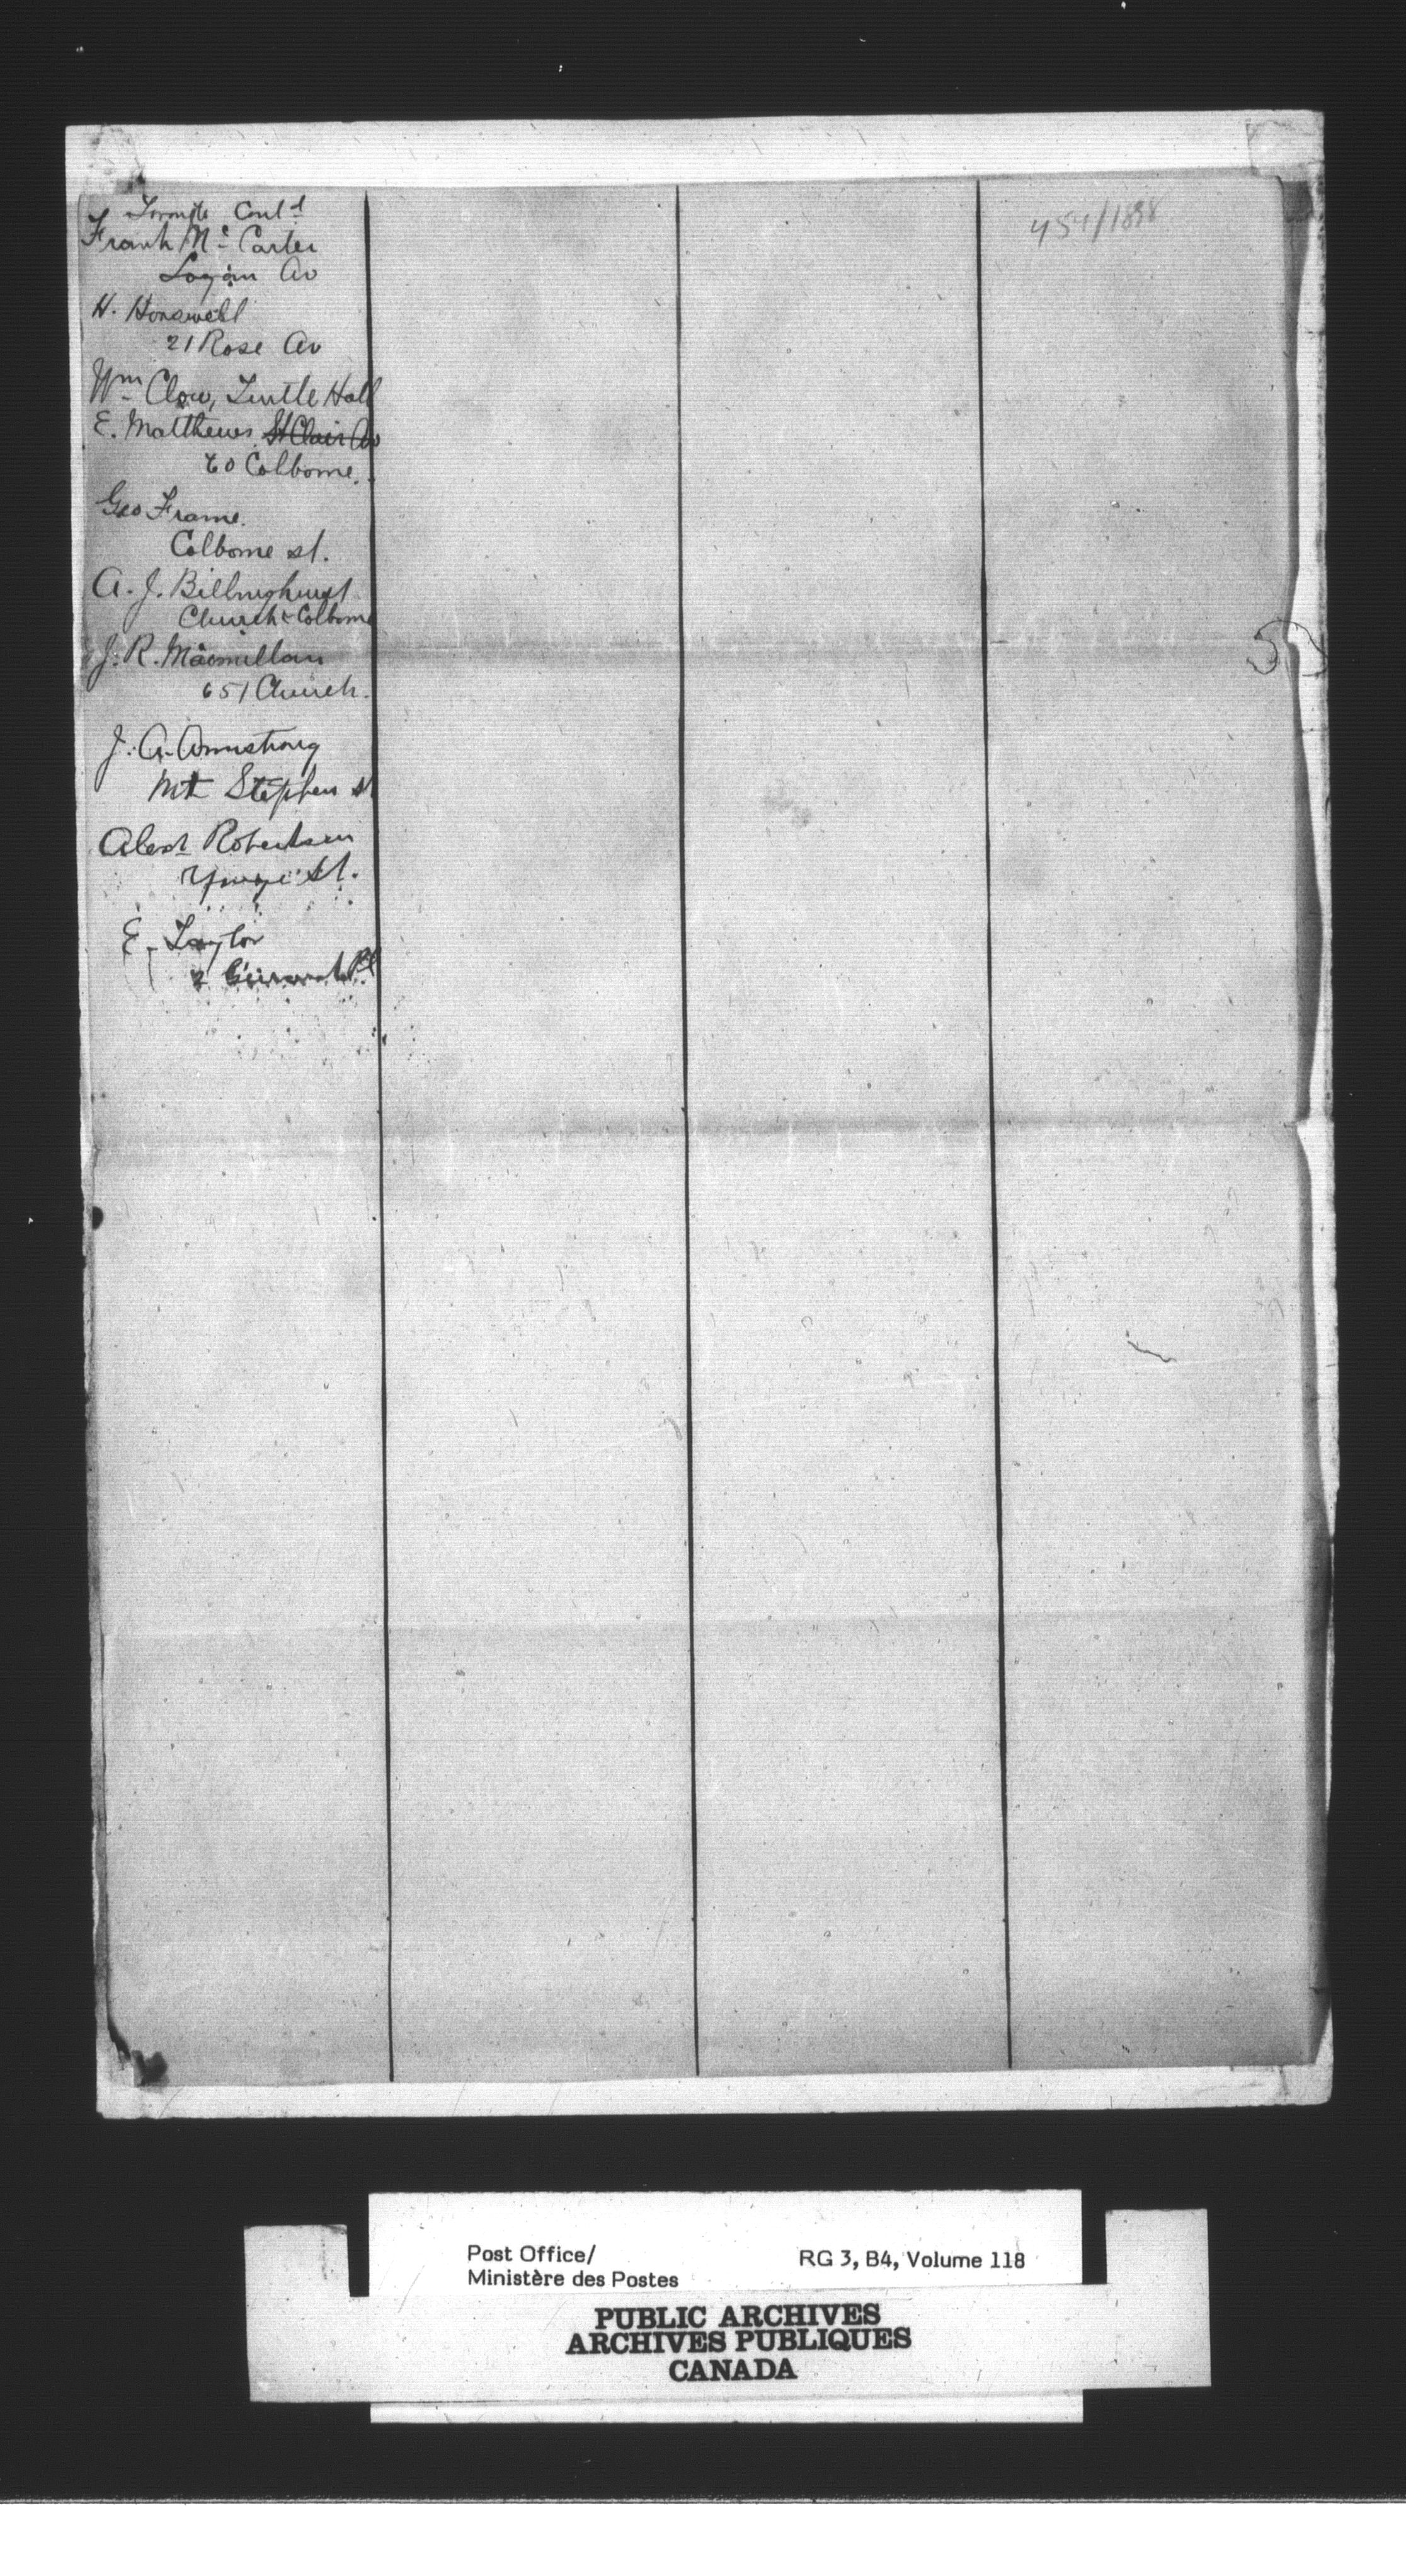 Toronto Contd
Frank Mc Carter
Logan Av
H. Honswell
21 Rose Av
Wm Clow, Turtle Hall
E. Matthews St Clair Av
60 Colborne.
Geo Frame.
Colborne st.
A. J. Billinghurst
Church & Colborne
J. R. Macmillan
651 Church.
J. A. Armstrong
Mt Stephen st
Alexr Robertson
Yonge St.
E. Taylor
2
454/1898
Post Office/
Ministère des Postes
RG 3, B4, Volume 118
PUBLIC ARCHIVES
ARCHIVES PUBLIQUES
CANADA